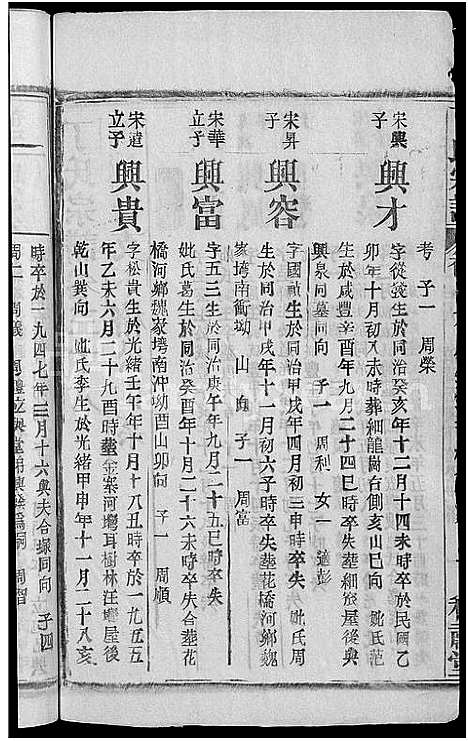 考 子一 周榮
宋興子
興才
字從錢生於同治癸亥年十二月十四未時卒於民國乙
卯年十月初八未時葬細龍崗右側亥山巳向 妣氏范
生於咸豐辛酉年九月二十四巳時卒失葬細 屋後與
興泉同墓同向 子一 周利 女一 適彭
宋昇子
興容
字國 生於同治甲戌年四月初三申時卒失 妣氏周
生於同治甲戌年十一月初六子時卒失葬花橋河鄉魏
家塆南衝坳 山 向 子一 周富
宋華立子
興富
字五三生於同治庚午年二十五巳時卒失
妣氏葛生於同治癸酉年十月二十六未時卒失合葬花
橋河鄉魏家塆南沖坳酉山卯向 子一 周順
宋達立子
興貴
字松貴生於光緒壬午年十月十八丑時卒於一九五五
年乙未六月二十九酉時葬金案河塆耳樹林汪塆屋後
乾山巽向 妣氏李生於光緒甲申年十一月二十八亥
時卒於一九四七年三月十六與夫合塚同向 子四
周仁 周義 周禮立與堂弟興 為祠 周智